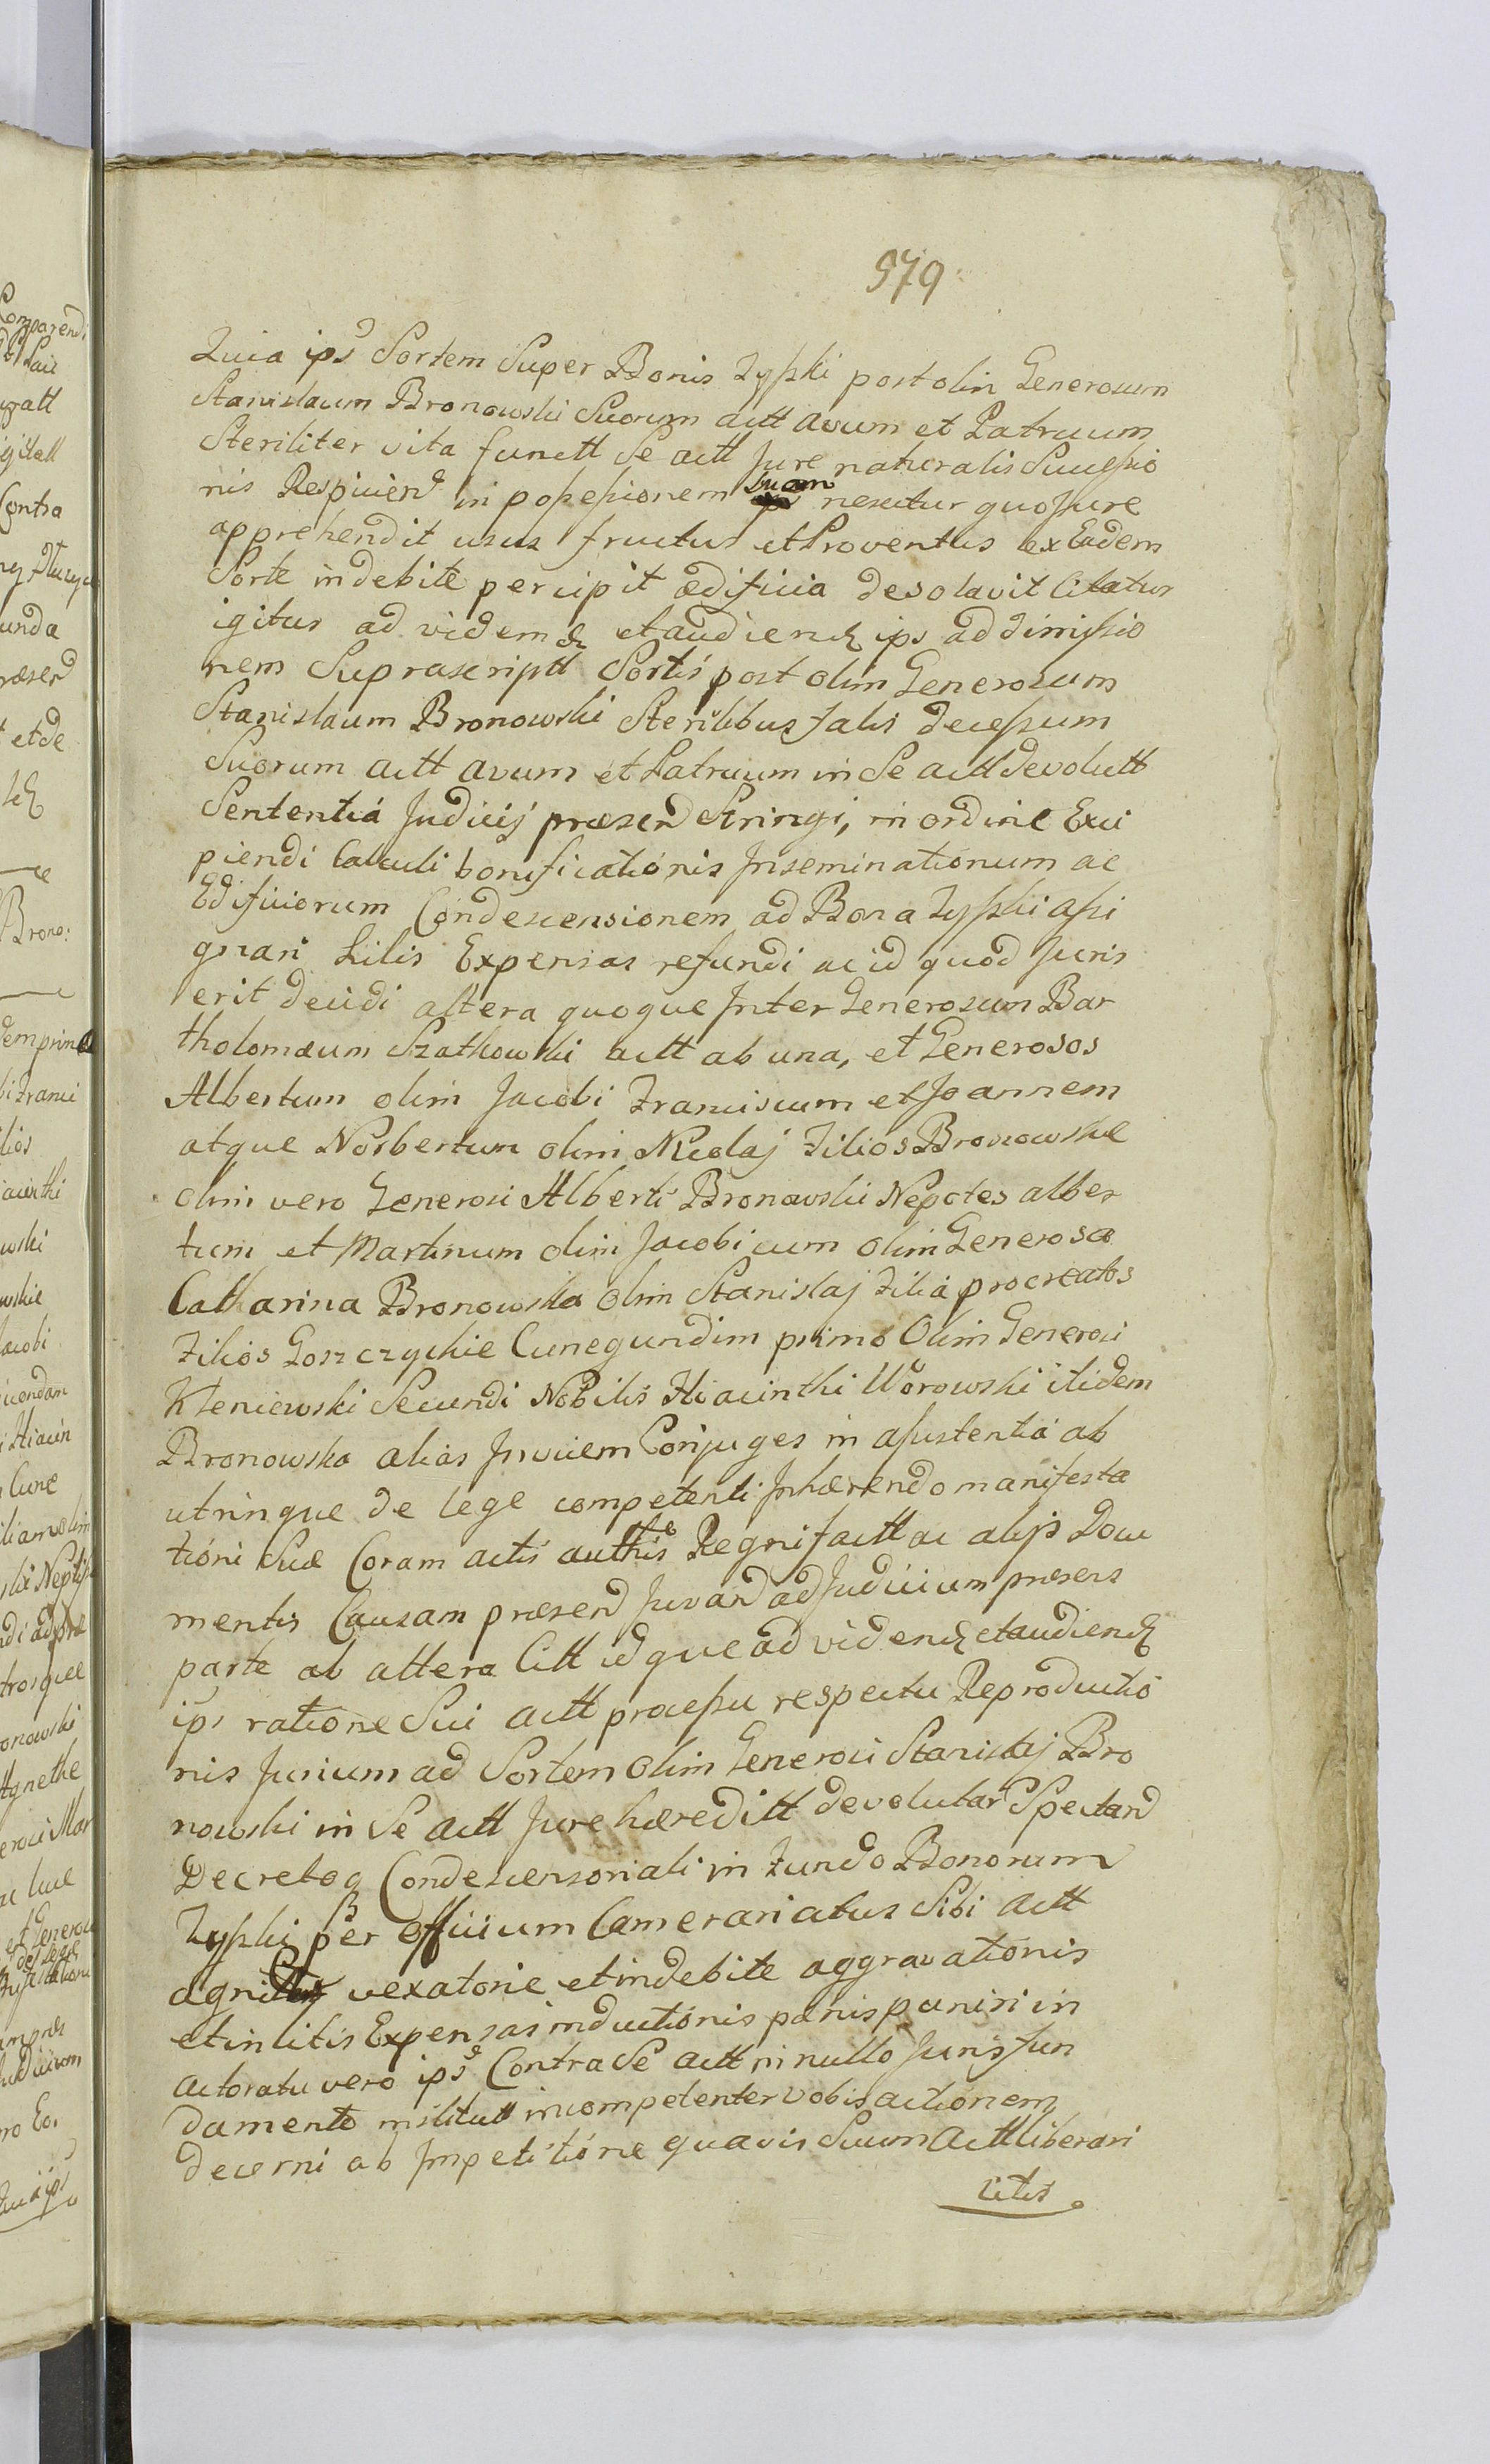 579
Quia ips Sortem Super Bonis Zyski post olim Generosum
Stanislaum Bronowski Suorum actt avum et Patruum
Steriliter vita functt Se actt Jure naturalis Successio
nis Respiciend in possessionem suam nescitur quo Jure
apprehendit usus fructus et Proventus ex Eadem
Sorte indebite percipit ædificia desolavit Citatur
igitur ad videmd et audiend ips ad dimissio
nem Suprascriptt Sortis post olim Generosum
Stanislaum Bronowski Sterilibus fatis decessum
Suorum actt avum et Patruum in Se actt devolutt
Sententia Judicij præsend Stringi, in ordine Exci
piendi Calculi bonificationis Inseminationum ac
Edificiorum Condescensionem ad Bona Zyski assi
gnari Litis Expensas refundi ac id quod Juris
erit decidi altera quoque Inter Generosum Bar
tholomæum Szatkowski actt ab una, et Generosos
Albertum olim Jacobi Franciscum et Joannem
atque Norbertum olim Nicolaj Filios Bronowskie
olim vero Generosi Alberti Bronowski Nepotes alber
tum et Martinum olim Jacobi cum olim Generosa
Catharina Bronowska olim Stanislaj Filia procreatos
Filios Goszczyckie Cunegundim primo Olim Generosi
Kleniewski Secundi Nobilis Hiacinthi Worowski itidem
Bronowska alias Invicem Conjuges in assistentia ab
utrinque de lege competenti Inhærendo manifesta
tioni Suæ Coram actis authis Regni factt ac alijs Docu
mentis Causam præsend Juvand ad Judicium præsens
parte ab altera Citt idque ad vidend et audiend
ips ratione Sui actt processu respectu Reproductio
nis Jurium ad Sortem olim Generosi Stanislaj Bro
nowski in Se actt Jure hæreditt devolutar Spectand
Decretoq Condescensoriali in Fundo Bonorum
Zyski per officium Camerariatus Sibi actt
vexatorie et indebite aggravationis
et in litis Expensas inductionis pœnis puniri in
actoratu vero ips Contra Se actt in nullo Juris fun
damento institutt incompetenter vobis actionem
decerni ab Impetitione quavis Suum Actt liberari
Litis